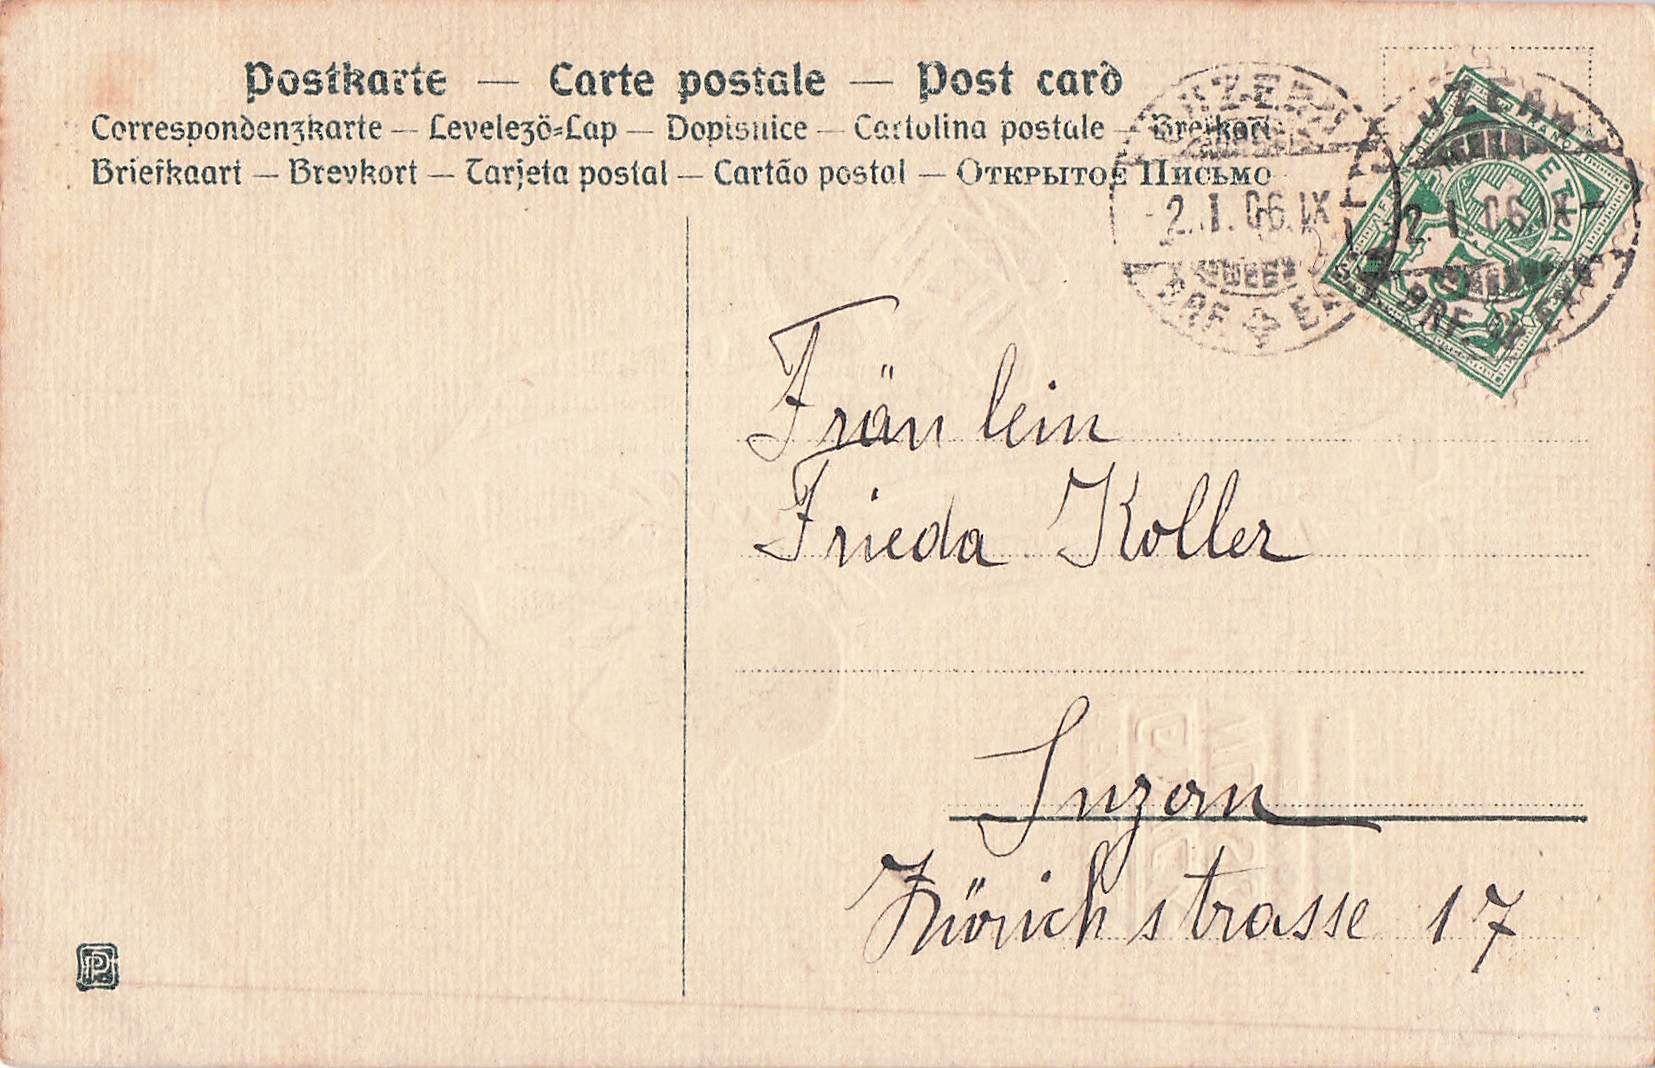 Postkarte — Carte postale — Post card
Correspondenzkarte — Levelező-Lap — Dopisnice — Cartolina postale — Brefkort
Briefkaart — Brevkort — Tarjeta postal — Cartão postal — Открытое Письмо
LUZERN LUZERN
2.I.06.IX 2.I.06.IX
BRF. EXP. BRF. EXP.
HELVETIA
5
Fräulein
Frieda Koller
Luzern
Zürichstrasse 17
PP